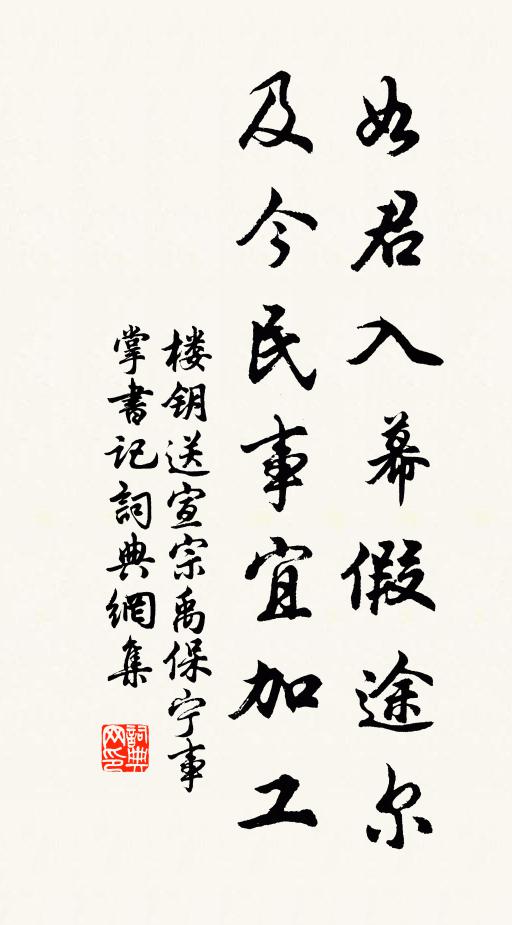 如君入幕假途尔
及今民事宜加工
楼钥送宣宗禹保宁事
掌书记詞典網集
詞典网印